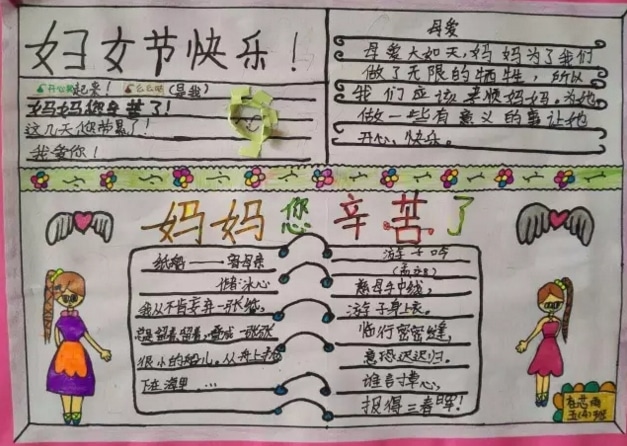 妇女节快乐！
起来！ (是我)
妈妈您辛苦了！
这几天您劳累了！
我爱你！
母爱
母爱大如天,妈妈为了我们
做了无限的牺牲，所以
我们应该孝顺妈妈。为她
做一些有意义的事让她
开心、快乐。
妈妈您辛苦了
纸船——寄母亲
作者:冰心
我从不肯妄弃一张纸,
总是留着,留着,叠成一张张
很小的船儿。从舟上
下在海里....
游子吟
(孟郊)
慈母手中线,
游子身上衣。
临行密密缝,
意恐迟迟归。
谁言寸草心,
报得三春晖！
五(4)班